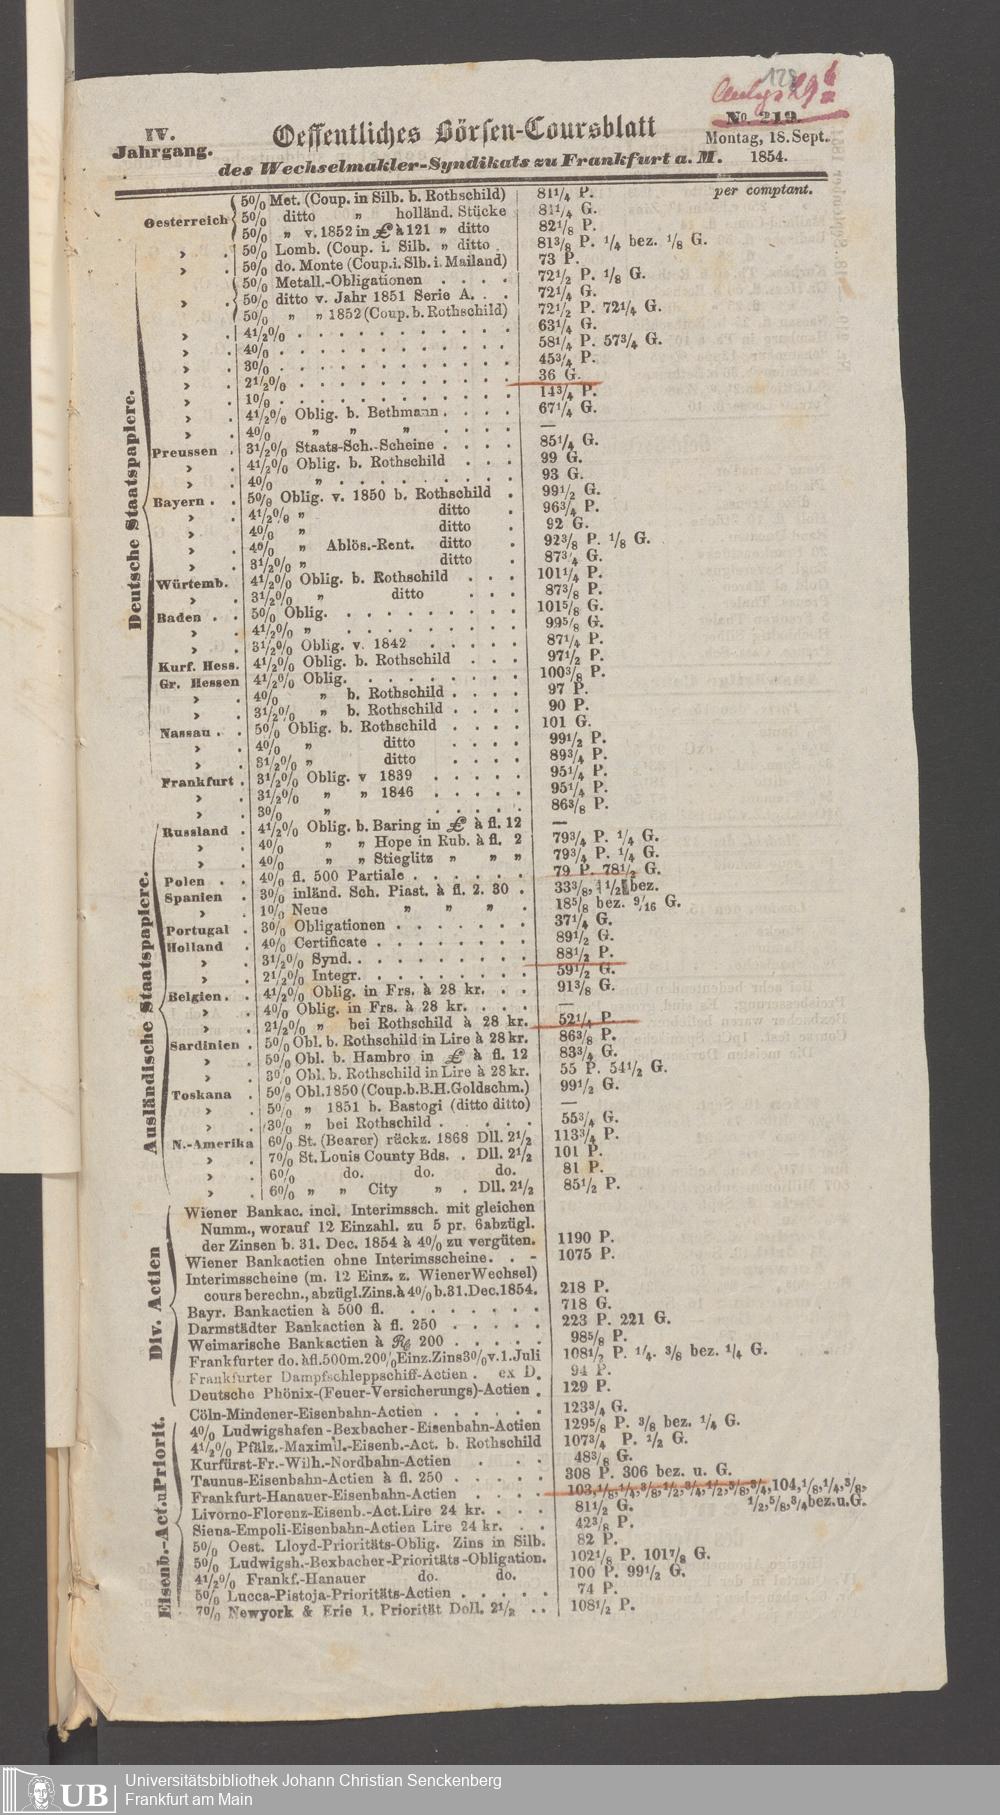 128
No. 219.
IV.
Jahrgang.
Oeffentliches Börsen-Coursblatt
des Wechselmakler-Syndikats zu Frankfurt a. M.
Montag, 18. Sept.
1854.
per comptant.
Deutsche Staatspapiere.
5% Met. (Coup. in Silb. b. Rothschild) 81¼ P.
Oesterreich 5% ditto „ holländ. Stücke 81¼ G.
5% „ v. 1852 in £ à 121 „ ditto 82⅛ P.
» . 5% Lomb. (Coup. i. Silb. „ ditto . 81⅜ P. ¼ bez. ⅛ G.
» . 5% do. Monte (Coup. i. Slb. i. Mailand) 73 P.
5% Metall.-Obligationen . . . . 72½ P. ⅛ G.
» . 5% ditto v. Jahr 1851 Serie A. . . 72¼ G.
5% „ „ 1852 (Coup. b. Rothschild) 72½ P. 72¼ G.
» . 4½% . . . . . . . . . . . 63¼ G.
» . 4% . . . . . . . . . . . 58¼ P. 57¾ G.
» . 3% . . . . . . . . . . . 45¾ P.
» . 2½% . . . . . . . . . . . 36 G.
» . 1% . . . . . . . . . . . 14¾ P.
» . 4½% Oblig. b. Bethmann . . . . 67¼ G.
» . 4% „ „ „ . . . . —
Preussen . 3½% Staats-Sch.-Scheine . . . . 85¼ G.
» . 4½% Oblig. b. Rothschild . . . 99 G.
» . 4% „ . . . . . . . . . 93 G.
Bayern . . 5% Oblig. v. 1850 b. Rothschild . 99½ G.
» . 4½% „ ditto . 96¾ P.
» . 4% „ ditto . 92 G.
» . 4% „ Ablös.-Rent. ditto . 92⅜ P. ⅛ G.
» . 3½% „ ditto . 87¾ G.
Würtemb. 4½% Oblig. b. Rothschild . . . 101¼ P.
» . 3½% „ ditto . . . 87⅜ P.
Baden . . 5% Oblig. . . . . . . . . 101⅝ G.
» . 4½% „ . . . . . . . . . 99⅝ G.
» . 3½% Oblig. v. 1842 . . . . . 87¼ P.
Kurf. Hess. 4½% Oblig. b. Rothschild . . . 97½ P.
Gr. Hessen 4½% Oblig. . . . . . . . . 100⅜ P.
» . 4% „ b. Rothschild . . . . 97 P.
» . 3½% „ b. Rothschild . . . . 90 P.
Nassau . . 5% Oblig. b. Rothschild . . . . 101 G.
» . 4% „ ditto . . . . 99½ P.
» . 3½% „ ditto . . . . 89¾ P.
Frankfurt . 3½% Oblig. v 1839 . . . . . 95¼ P.
» . 3½% „ „ 1846 . . . . . 95¼ P.
» . 3% „ . . . . . 86⅜ P.
Ausländische Staatspapiere.
Russland . 4½% Oblig. b. Baring in £ à fl. 12 —
» . 4% „ „ Hope in Rub. à fl. 2 79¾ P. ¼ G.
» . 4% „ „ Stieglitz „ „ „ 79¾ P. ¼ G.
Polen . . 4% fl. 500 Partiale . . . . . . 79 P. 78½ G.
Spanien . 3% inländ. Sch. Piast. à fl. 2. 30 . 33⅜, ½ bez.
» . 1% Neue „ „ „ . 18⅝ bez. 9/16 G.
Portugal . 3% Obligationen . . . . . . . 37¼ G.
Holland . 4% Certificate . . . . . . . . 89½ G.
» . 3½% Synd. . . . . . . . . . 88½ P.
» . 2½% Integr. . . . . . . . . 59½ G.
Belgien . . 4½% Oblig. in Frs. à 28 kr. . . 91⅜ G.
» . 4% Oblig. in Frs. à 28 kr. . . —
» . 2½% „ bei Rothschild à 28 kr. 52¼ P.
Sardinien . 5% Obl. b. Rothschild in Lire à 28 kr. 86⅜ P.
» . 5% Obl. b. Hambro in £ à fl. 12 83¾ G.
» . 3% Obl. b. Rothschild in Lire à 28 kr. 55 P. 54½ G.
Toskana . 5% Obl. 1850 (Coup. b. B. H. Goldschm.) 99½ G.
» . 5% „ 1851 b. Bastogi (ditto ditto) —
» . 3% „ bei Rothschild . . . . . 55¾ G.
N.-Amerika 6% St. (Bearer) rückz. 1868 Dll. 2½ 113¾ P.
» . 7% St. Louis County Bds. . Dll. 2½ 101 P.
» . 6% do. do. do. 81 P.
» . 6% „ „ City „ . Dll. 2½ 85½ P.
Div. Actien
Wiener Bankac. incl. Interimssch. mit gleichen
Numm., worauf 12 Einzahl. zu 5 pr. 6abzügl.
der Zinsen b. 31. Dec. 1854 à 4% zu vergüten. 1190 P.
Wiener Bankactien ohne Interimsscheine. . - 1075 P.
Interimsscheine (m. 12 Einz. z. Wiener Wechsel)
cours berechn., abzügl. Zins. à 4% b. 31. Dec. 1854. 218 P.
Bayr. Bankactien à 500 fl. . . . . . . . 718 G.
Darmstädter Bankactien à fl. 250 . . . . . 223 P. 221 G.
Weimarische Bankactien à 200 . . . . . 98⅝ P.
Frankfurter do. à fl. 500 m. 20% Einz. Zins 3% v. 1. Juli 108½ P. ¼. ⅜ bez. ¼ G.
Frankfurter Dampfschleppschiff-Actien . ex D. 94 P.
Deutsche Phönix-(Feuer-Versicherungs)-Actien . 129 P.
Eisenb.-Act. u Priorit.
Cöln-Mindener-Eisenbahn-Actien . . . . . . 123¾ G.
4% Ludwigshafen-Bexbacher-Eisenbahn-Actien 129⅝ P. ⅜ bez. ¼ G.
4½% Pfälz.-Maximil.-Eisenb.-Act. b. Rothschild 107¾ P. ½ G.
Kurfürst-Fr.-Wilh.-Nordbahn-Actien . . . 48⅜ G.
Taunus-Eisenbahn-Actien à fl. 250 . . . . . 308 P. 306 bez. u. G.
Frankfurt-Hanauer-Eisenbahn-Actien . . . . 103, ⅛, ¼, ⅜, ½, ¾, ½, ⅝, ¾, 104, ⅛, ¼, ⅜,
½, ⅝, ¾ bez. u. G.
Livorno-Florenz-Eisenb.-Act. Lire 24 kr. . . . 81½ G.
Siena-Empoli-Eisenbahn-Actien Lire 24 kr. . . 42⅜ P.
5% Oest. Lloyd-Prioritäts-Oblig. Zins in Silb. 82 P.
5% Ludwigsh.-Bexbacher-Prioritäts-Obligation. 102⅛ P. 101⅞ G.
4½% Frankf.-Hanauer do. do. 100 P. 99½ G.
5% Lucca-Pistoja-Prioritäts-Actien . . . . . 74 P.
7% Newyork & Erie 1. Priorität Doll. 2½ . . 108½ P.
UB
Universitätsbibliothek Johann Christian Senckenberg
Frankfurt am Main